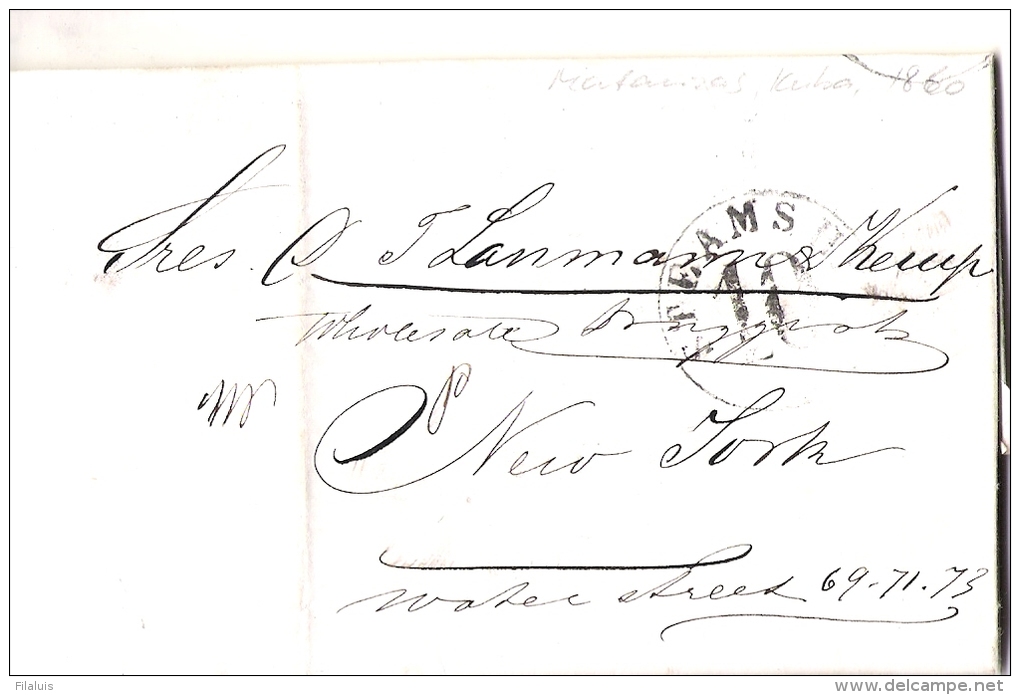 Matanzas, Kuba, 1860
Sres. D T Lanmann & Kemp
STEAMSHIP
10
Wholesale Druggists
New York
water street 69-71-73
Filaluis
delcampe.net